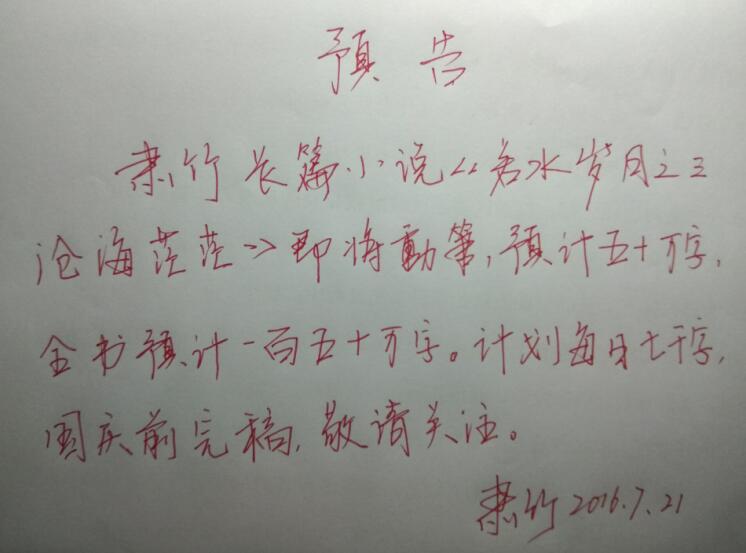 预告
肃竹长篇小说《若水岁月之三
沧海茫茫》即将動筆,预计五十万字,
全书预计一百五十万字。计划每日七千字,
国庆前完稿,敬请关注。
肃竹2016.7.21